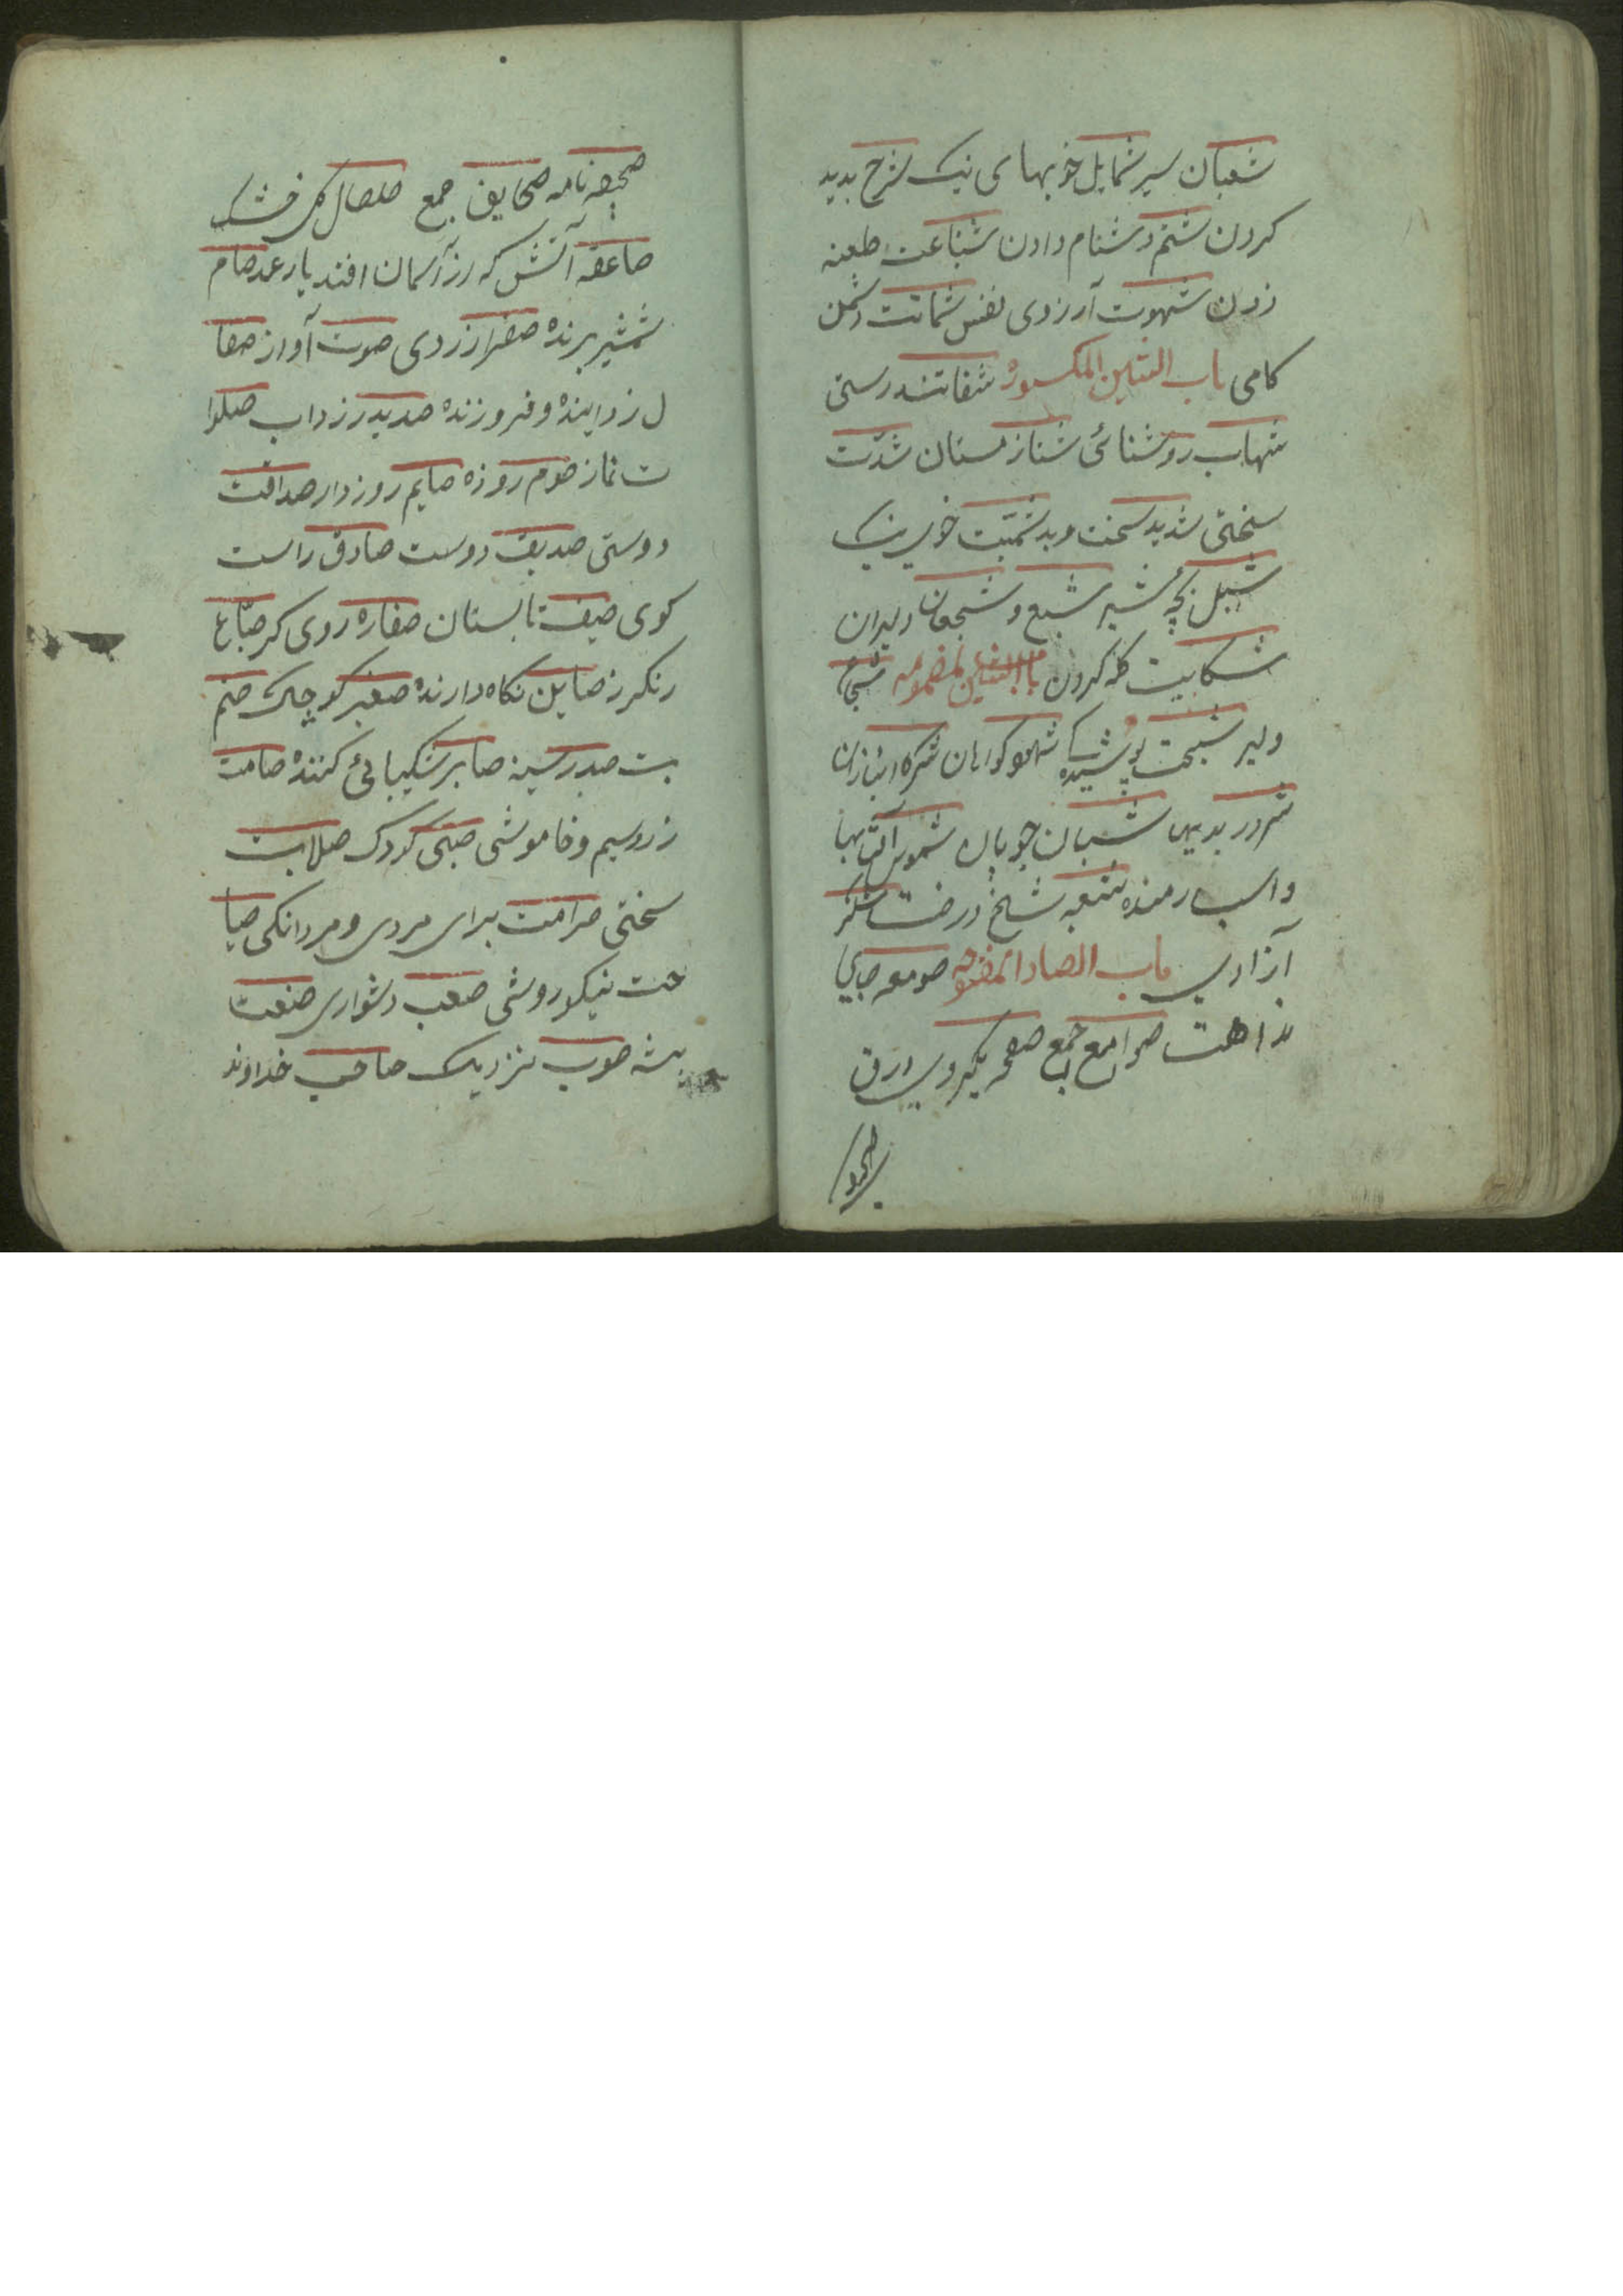 شعبان سیر شمایل خوبهای نیک شرح بدید
کردن شتم دشنام دادن شناعت طعنه
زدن شهوت آرزوی نفس شماتت دشمن
کامی باب الشین المکسوره شفا تندرستی
شهاب روشنائی شتا زمستان شدّت
سختی شدید سخت و بد شیمت خوی نیک
شبل بچّه شیر شبع و شجعان دلیران
شکایت کله کردن باب الشین المضمومه شجاع
دلیر شیخت پوشیده شهود کواهان شرکا انبازان
شرور بدیها شبان چوپان شموس آفتابها
و اسب رمنده شعبه شاخ درخت شکر
آزادی باب الصاد المفتوحه صومعه جای
بداهت صوامع جمع صفحه یکروی ورق
صحیفه نامه صحایف جمع صلصال کل خشک
صاعقه آتش که از آسمان افتد یا رعد صام
شمشیر برنده صفرا زردی صوت آواز صقا
ل زداینده و فروزنده صدید زرداب صلوا
ت نماز صوم روزه صایم روزدار صداقت
دوستی صدیق دوست صادق راست
کوی صیف تابستان صفاره روی کر صبّاغ
رنکرز صاین نکاه دارنده صغیر کوچک صنم
بت صدر سینه صابر شکیبائی کننده صامت
زر و سیم و خاموشی صبی کودک صلابت
سختی صرامت برای مردی و مردانکی صبا
حت نیکو روشی صعب دشواری صنعت
پیشه صوب نزدیک صاحب خداوند